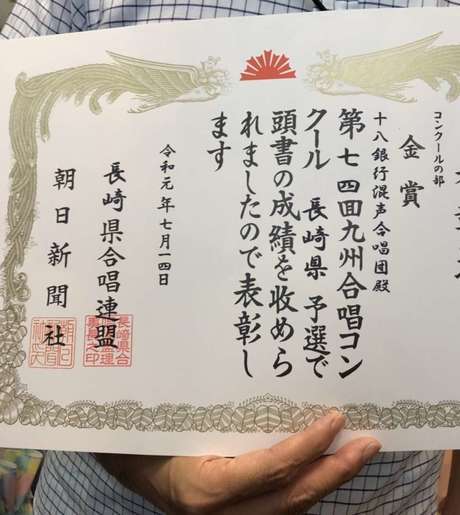 コンクールの部
金賞
十八銀行混声合唱団殿
第七四回九州合唱コン
クール 長崎県 予選で
頭書の成績を収めら
れましたので表彰し
ます
令和元年七月一四日
長崎県合唱連盟
朝日新聞社